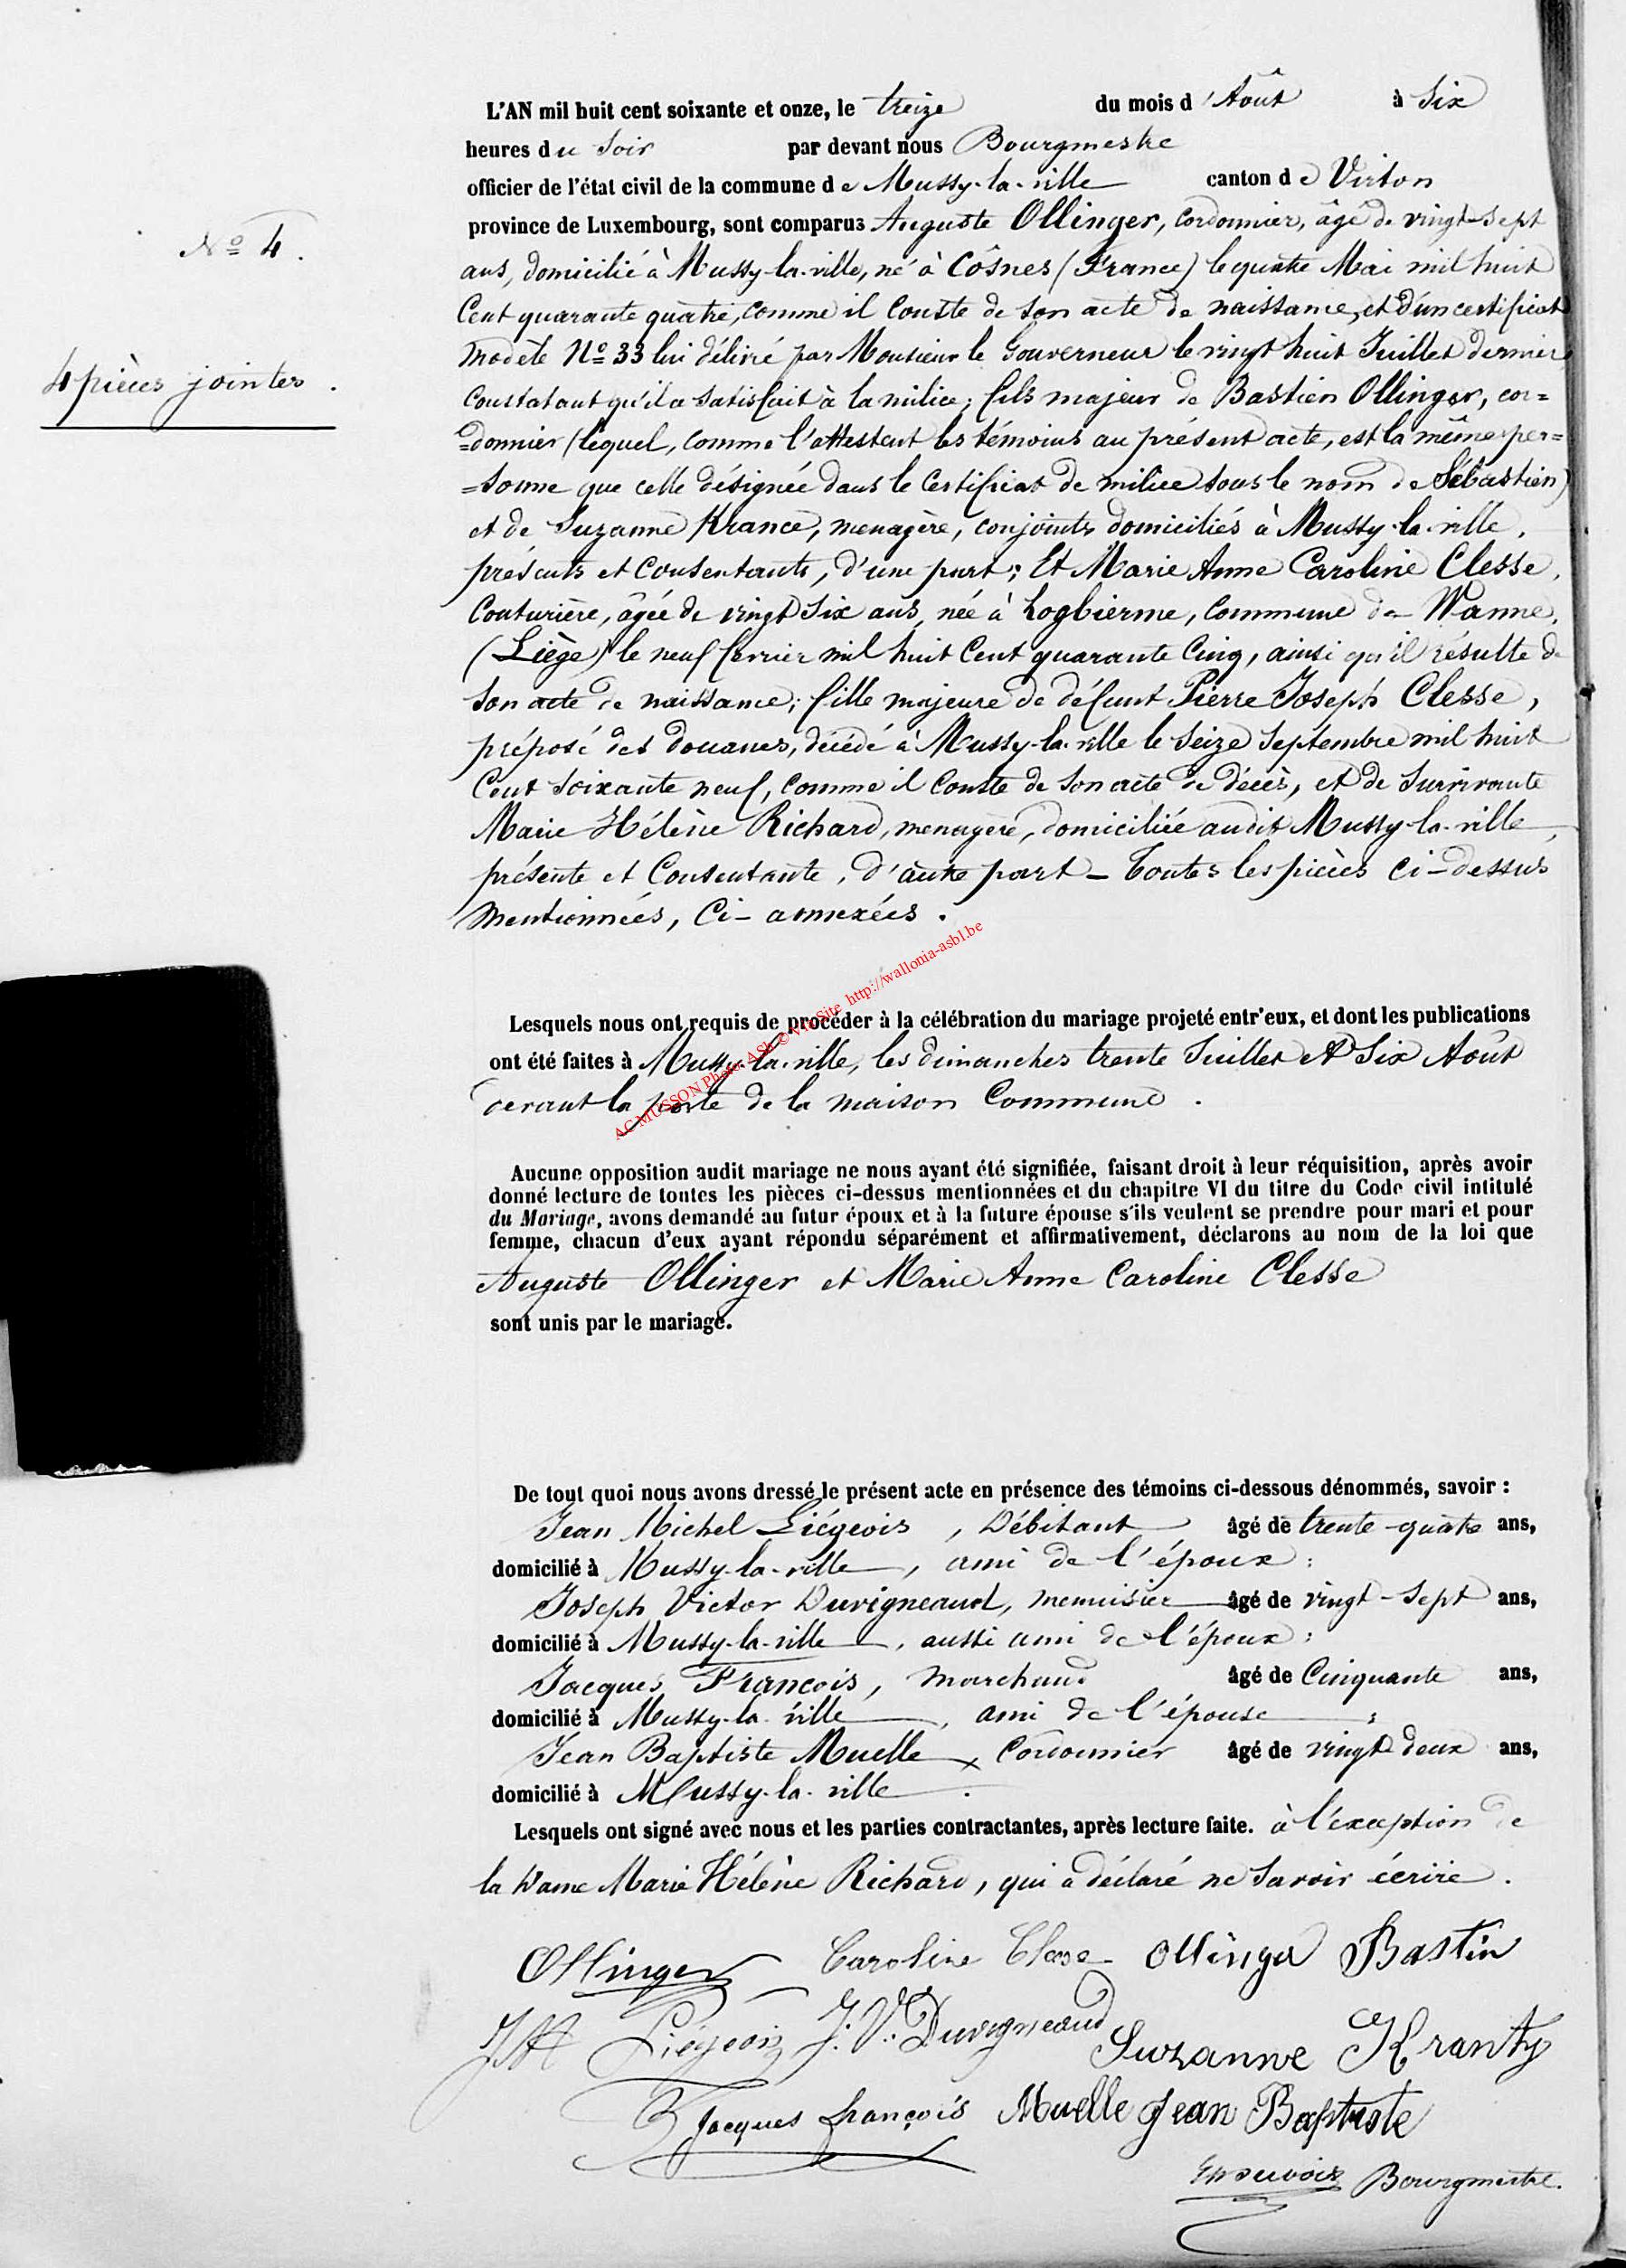 L'AN mil huit cent soixante et onze, le treize du mois d'Août à Six
heures du Soir par devant nous Bourgmestre
officier de l'état civil de la commune de Mussy-la-ville canton de Virton
N° 4.
province de Luxembourg, sont comparus Auguste Ollinger, Cordonnier, âgé de vingt-sept
ans, domicilié à Mussy-la-ville, né à Cosnes (France) le quatre Mai mil huit
Cent quarante quatre, comme il conste de son acte de naissance, et d'un certificat
4 pièces jointes.
modèle N° 33 lui délivré par Monsieur le Gouverneur le vingt huit Juillet dernier,
constatant qu'il a satisfait à la milice; fils majeur de Bastien Ollinger, cor=
=donnier (lequel, comme l'attestent les témoins au présent acte, est la même per=
=sonne que celle désignée dans le Certificat de milice sous le nom de Sébastien)
et de Suzanne Krance, menagère, conjoints domiciliés à Mussy-la-ville,
présents et Consentants, d'une part; Et Marie Anne Caroline Clesse,
Couturière, âgée de vingt Six ans, née à Logbierme, Commune de Wanne,
(Liège) le neuf fevrier mil huit Cent quarante Cinq, ainsi qu'il résulte de
son acte de naissance; fille majeure de défunt Pierre Joseph Clesse,
préposé des douanes, décédé à Mussy-la-ville le Seize Septembre mil huit
Cent soixante neuf, comme il conste de son acte de décès, et de Survivante
Marie Hélène Richard, menagère, domiciliée audit Mussy-la-ville,
présente et Consentante, d'autre part _ Toutes les pièces ci-dessus
mentionnées, Ci-annexées.
AC MUSSON Photo. ASb © Via Site http://wallonia-asbl.be
Lesquels nous ont requis de procéder à la célébration du mariage projeté entr'eux, et dont les publications
ont été faites à Mussy-la-ville, les dimanches trente Juillet et Six Août
devant la porte de la maison Commune.
Aucune opposition audit mariage ne nous ayant été signifiée, faisant droit à leur réquisition, après avoir
donné lecture de toutes les pièces ci-dessus mentionnées et du chapitre VI du titre du Code civil intitulé
du Mariage, avons demandé au futur époux et à la future épouse s'ils veulent se prendre pour mari et pour
femme, chacun d'eux ayant répondu séparément et affirmativement, déclarons au nom de la loi que
Auguste Ollinger et Marie Anne Caroline Clesse
sont unis par le mariage.
De tout quoi nous avons dressé le présent acte en présence des témoins ci-dessous dénommés, savoir :
Jean Michel Liégeois, Débitant âgé de trente-quatre ans,
domicilié à Mussy-la-ville, ami de l'époux;
Joseph Victor Duvigneaud, menuisier âgé de vingt-sept ans,
domicilié à Mussy-la-ville, aussi ami de l'époux;
Jacques François, marchand âgé de Cinquante ans,
domicilié à Mussy-la-ville, ami de l'épouse;
Jean Baptiste Muelle, Cordonnier âgé de vingt deux ans,
domicilié à Mussy-la-ville.
Lesquels ont signé avec nous et les parties contractantes, après lecture faite. à l'exception de
la Dame Marie Hélène Richard, qui a déclaré ne savoir écrire.
Ollinger Caroline Clesse Ollinger Bastin
JM Liégeois J. V. Duvigneaud Suzanne Krantz
Jacques françois Muelle Jean Baptiste
Bourgmestre.